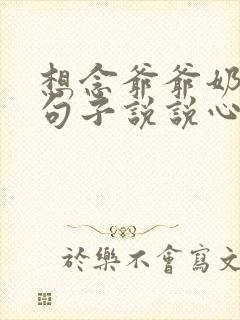 想念爷爷奶
句子说说心
於樂不會寫文